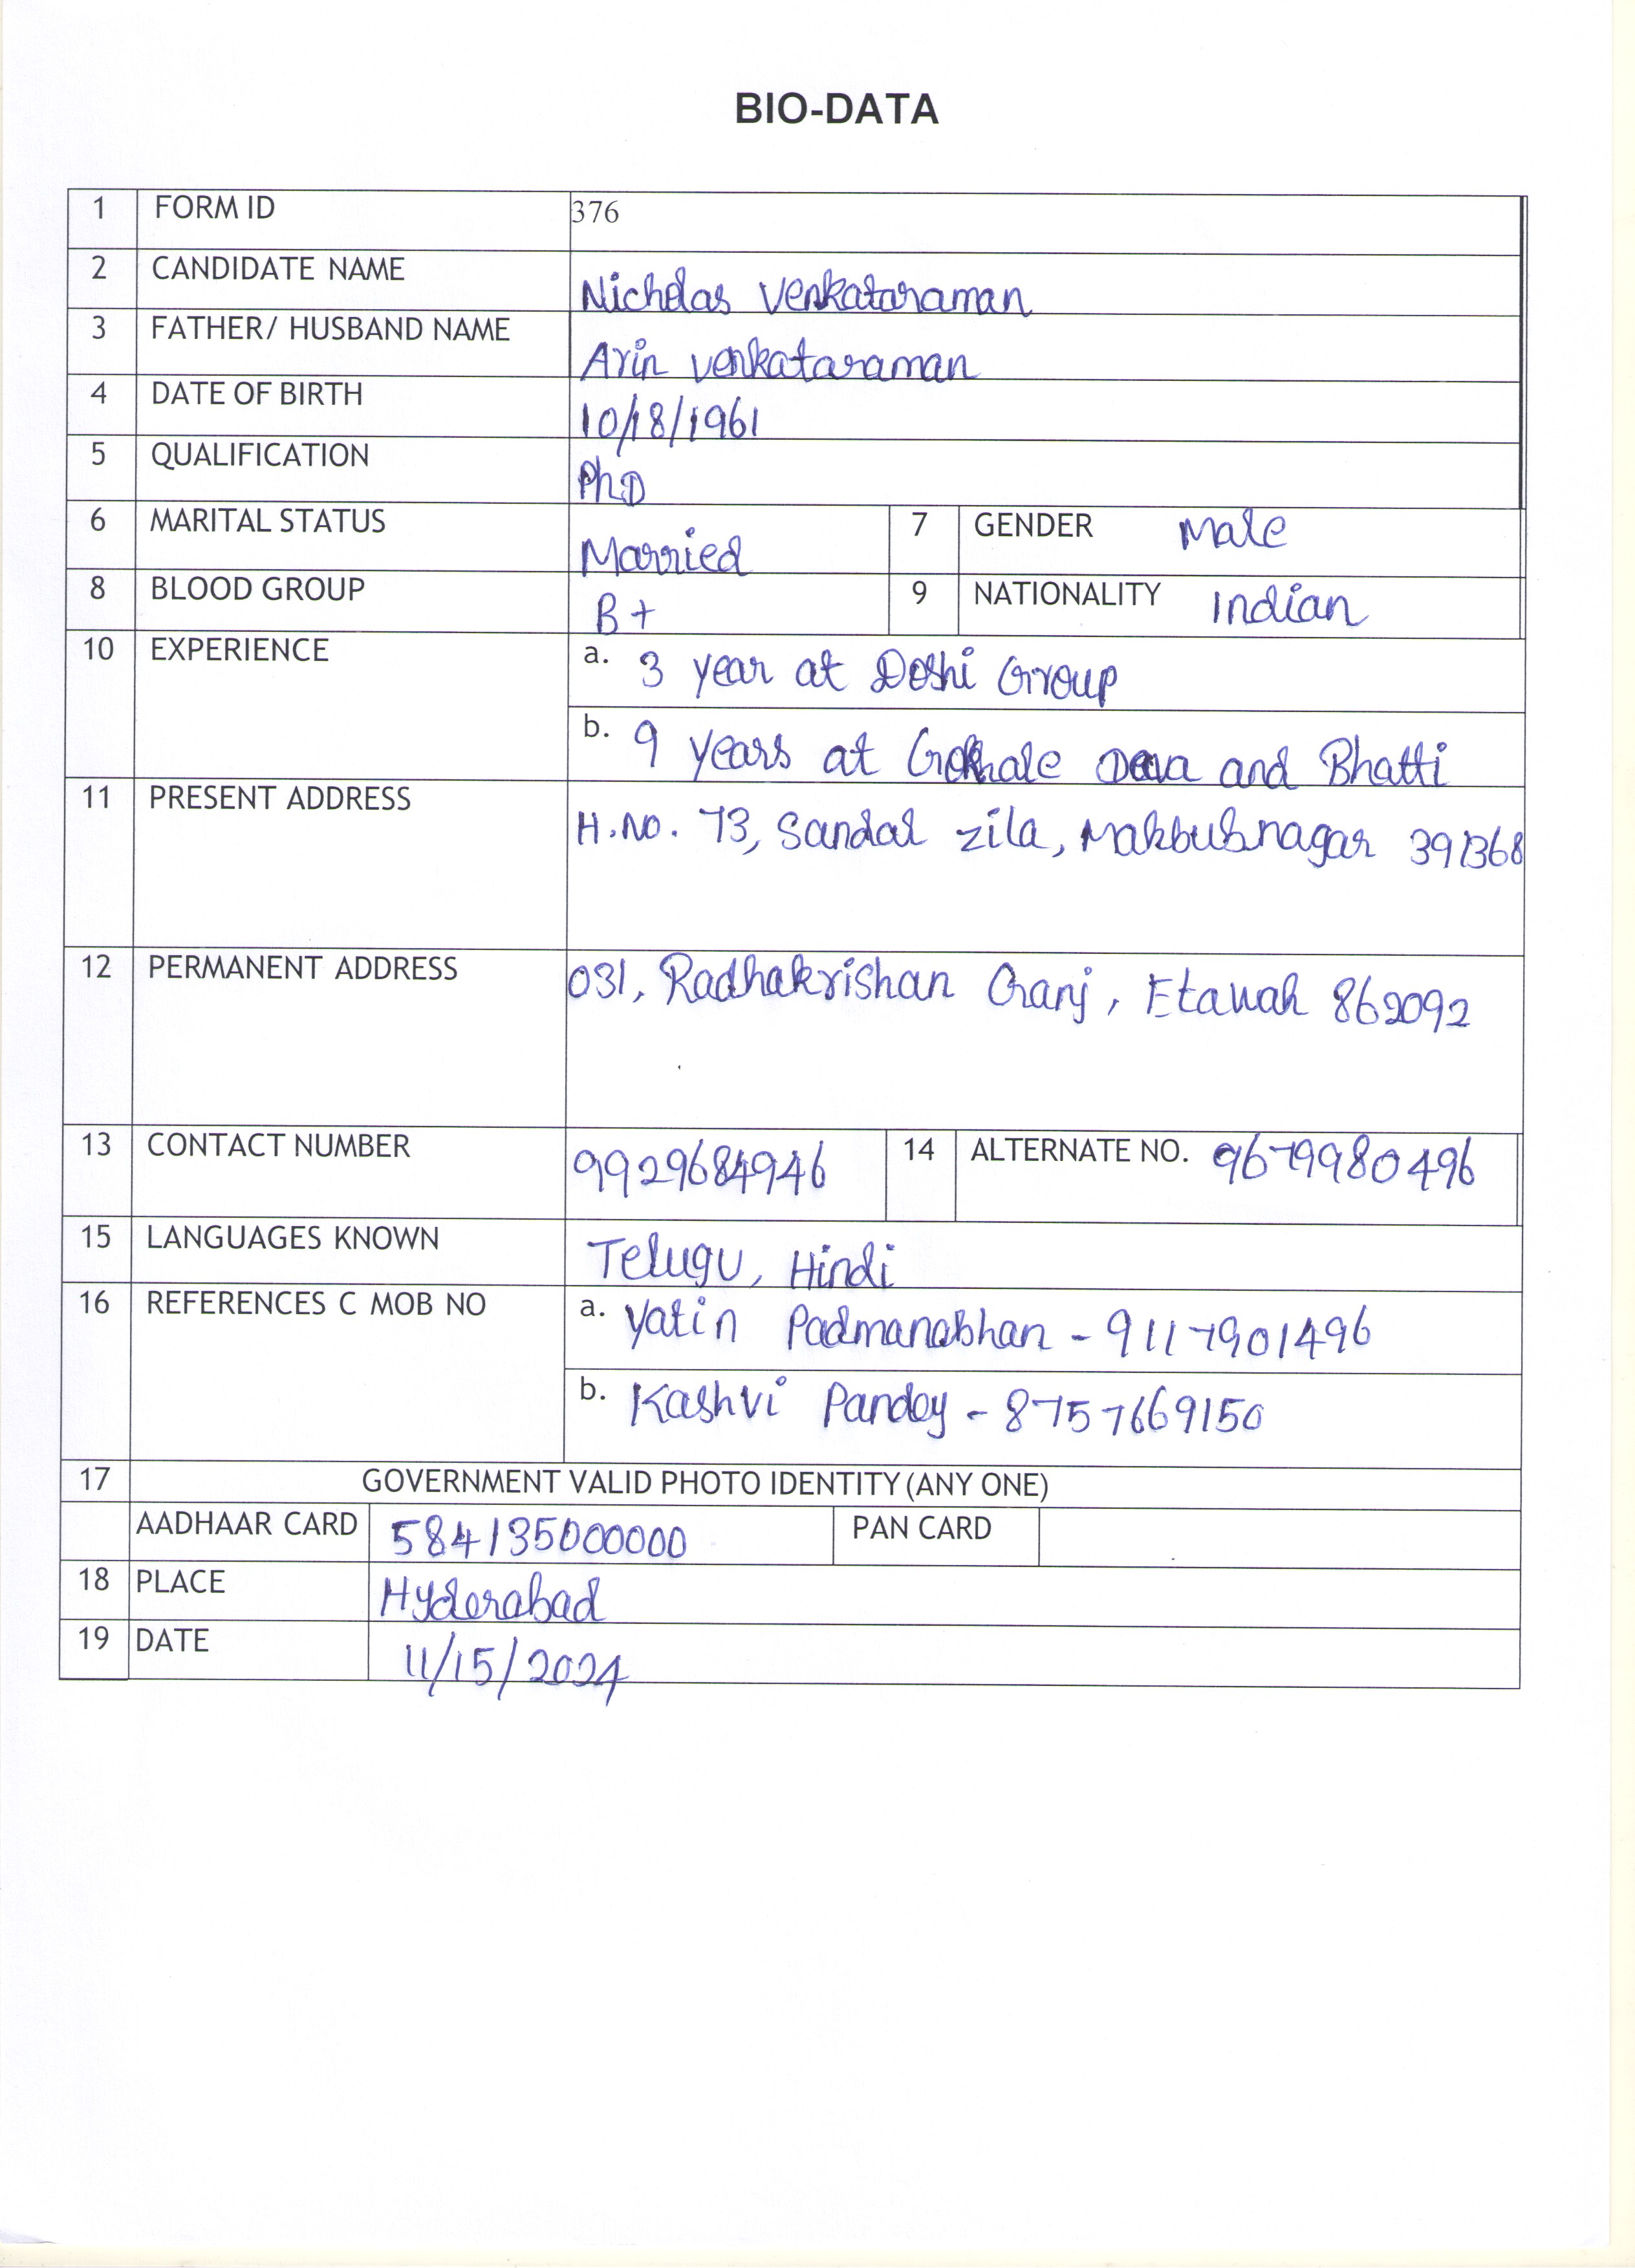 BIO-DATA
1 FORM ID 376
2 CANDIDATE NAME Nicholas Venkataraman
3 FATHER/ HUSBAND NAME Arin Venkataraman
4 DATE OF BIRTH 10/18/1961
5 QUALIFICATION PhD
6 MARITAL STATUS Married 7 GENDER Male
8 BLOOD GROUP B+ 9 NATIONALITY Indian
10 EXPERIENCE a. 3 year at Doshi Group
b. 9 years at Gokhale Deva and Bhatti
11 PRESENT ADDRESS H.No. 73, Sandal Zila, Makbubnagar 391368
12 PERMANENT ADDRESS 031, Radhakrishan Ganj, Etawah 862092
13 CONTACT NUMBER 9929684946 14 ALTERNATE NO. 9679980496
15 LANGUAGES KNOWN Telugu, Hindi
16 REFERENCES C MOB NO a. Yatin Padmanabhan - 9117901496
b. Kashvi Pandey - 8757669150
17 GOVERNMENT VALID PHOTO IDENTITY (ANY ONE)
AADHAAR CARD 584135000000 PAN CARD
18 PLACE Hyderabad
19 DATE 11/15/2024